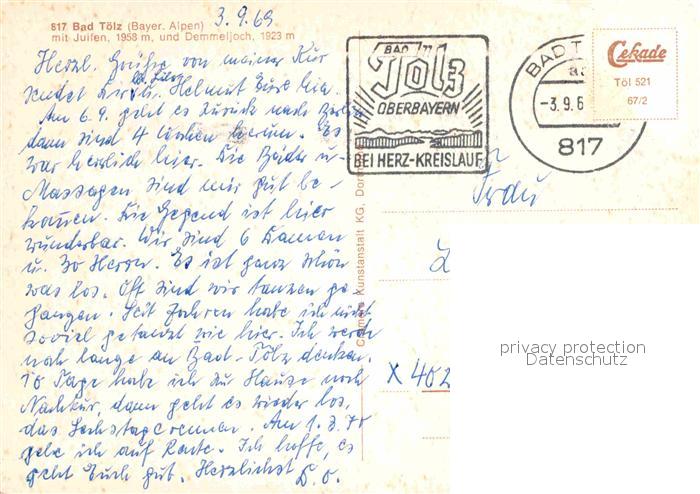 817 Bad Tölz (Bayer. Alpen)
mit Juifen, 1958 m, und Demmeljoch, 1923 m
3.9.69
Herzl. Grüße von meiner Kur
sendet Helmut
Am 6.9. geht es zurück nach Berlin
dann sind 4 Wochen herum. Es
war herrlich hier. Die Bäder u.
Massagen sind mir gut be-
kommen. Die Gegend ist hier
wunderbar. Wir sind 6 Damen
u. 30 Herren. Es ist ganz schön
was los. Oft sind wir tanzen ge-
gangen. Seit Jahren habe ich nicht
soviel getanzt wie hier. Ich werde
noch lange an Bad-Tölz denken.
10 Tage habe ich zu Hause noch
Nachkur, dann geht es wieder los,
das Sechstagerennen. Am 1.3.70
gehe ich auf Rente. Ich hoffe, es
geht Euch gut. Herzlichst D.O.
BAD
Tölz
OBERBAYERN
BEI HERZ-KREISLAUF
BAD T
-3.9.6
817
Cekade
Töl 521
67/2
Frau
X 402
Kunstanstalt KG, Dor
privacy protection
Datenschutz